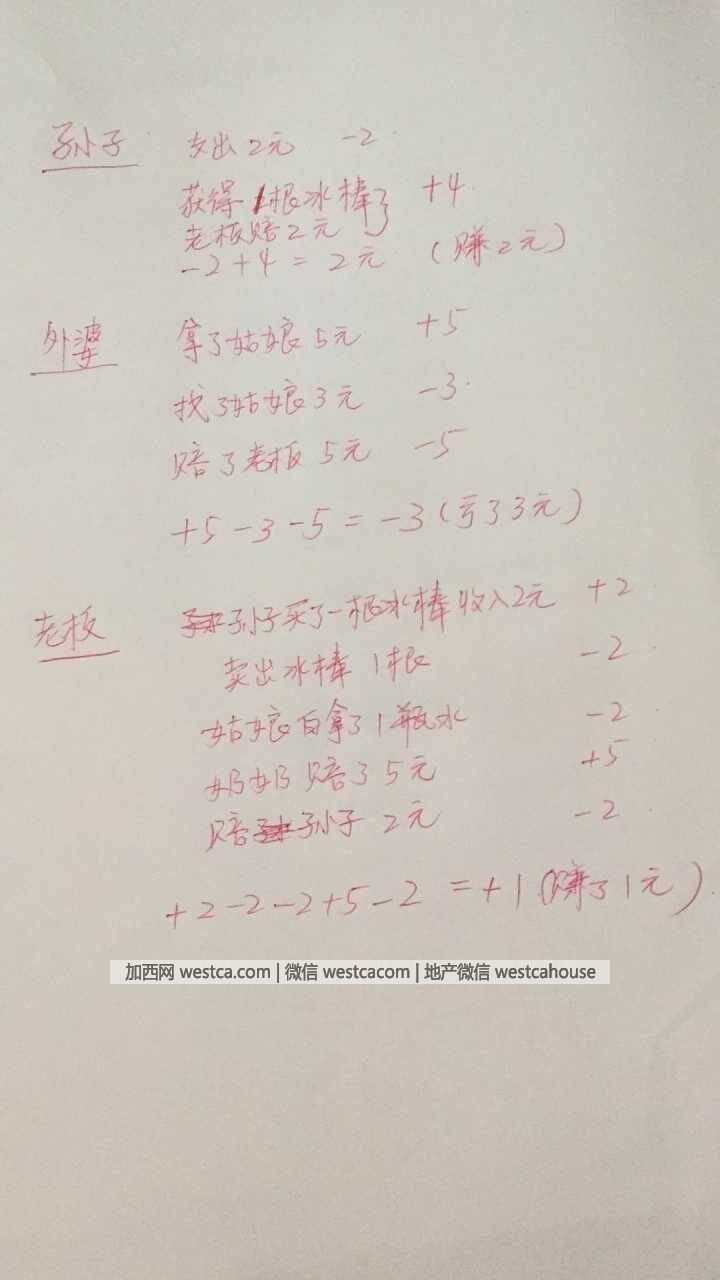 孙小子 支出2元 -2
获得1根冰棒 } +4
老板赔2元
-2+4=2元 (赚2元)
外婆 拿了姑娘5元 +5
找了姑娘3元 -3
赔了老板5元 -5
+5-3-5=-3(亏了3元)
老板 孙子买了一根冰棒收入2元 +2
卖出冰棒1根 -2
姑娘白拿了1瓶水 -2
奶奶赔了5元 +5
赔孙子2元 -2
+2-2-2+5-2=+1(赚了1元)
加西网 westca.com | 微信 westcacom | 地产微信 westcahouse